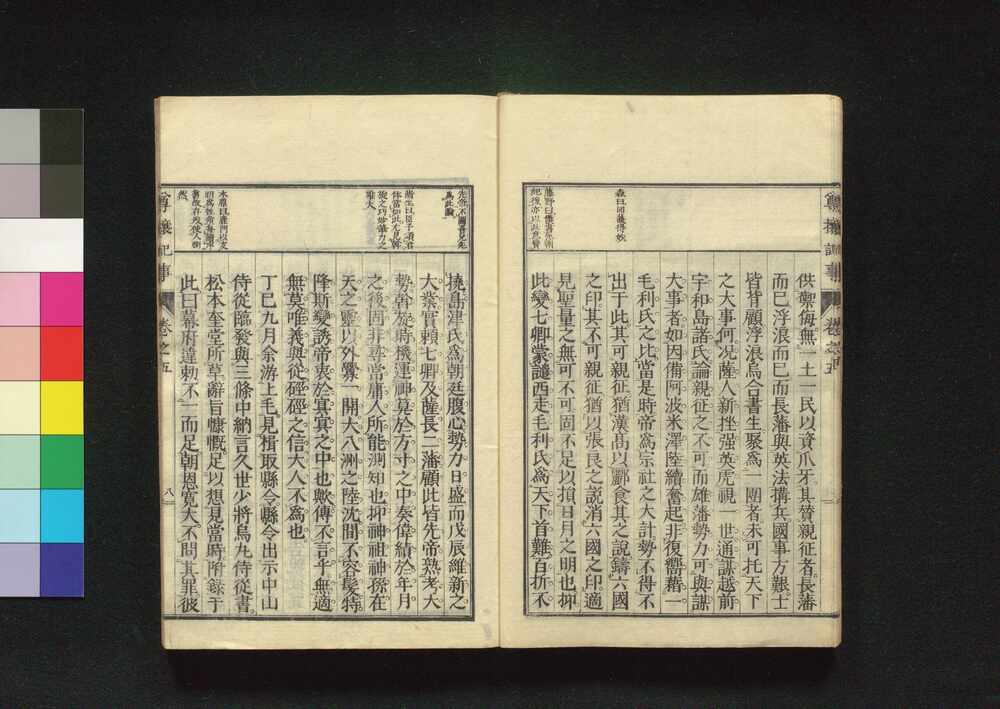 森曰用儀得妙
供禦侮無一土一民以資爪牙其贊親征者長藩
而已浮浪而已而長藩與英法搆兵國事方艱士
皆背顧浮浪烏合書生聚爲一團者未可托天下
之大事何況薩人新挫强英虎視一世通謀越前
宇和島諸氏論親征之不可而雄藩勢力可與謀
大事者如因備阿波米澤陸續奮起非復嚮藉一
毛利氏之比當是時帝爲宗社之大計勢不得不
出于此其可親征猶漢高以酈食其之說鑄六國
之印其不可親征猶以張良之說消六國之印適
見聖量之無可不可固不足以損日月之明也抑
此變七卿蒙譴西走毛利氏爲天下首難百折不
撓島津氏爲朝廷腹心勢力日盛而戊辰維新之
大業實賴七卿及薩長二藩顧此皆先帝熟考大
勢幹旋時機運神算於方寸之中奏偉績於年月
之後固非尋常庸人所能測知也抑神祖神孫在
天之靈以外釁一開大八洲之陸沈間不容髮特
降斯變誘帝衷於冥冥之中也歟傳不言乎無適
無莫唯義與從硜硜之信大人不爲也
丁巳九月余游上毛見楫取縣令縣令出示中山
侍從臨發與三條中納言久世少將烏丸侍從書
松本奎堂所草辭旨慷慨足以想見當時附錄于
此曰幕府違勅不一而足朝恩寬大不問其罪彼
尊攘記事
卷之五
八